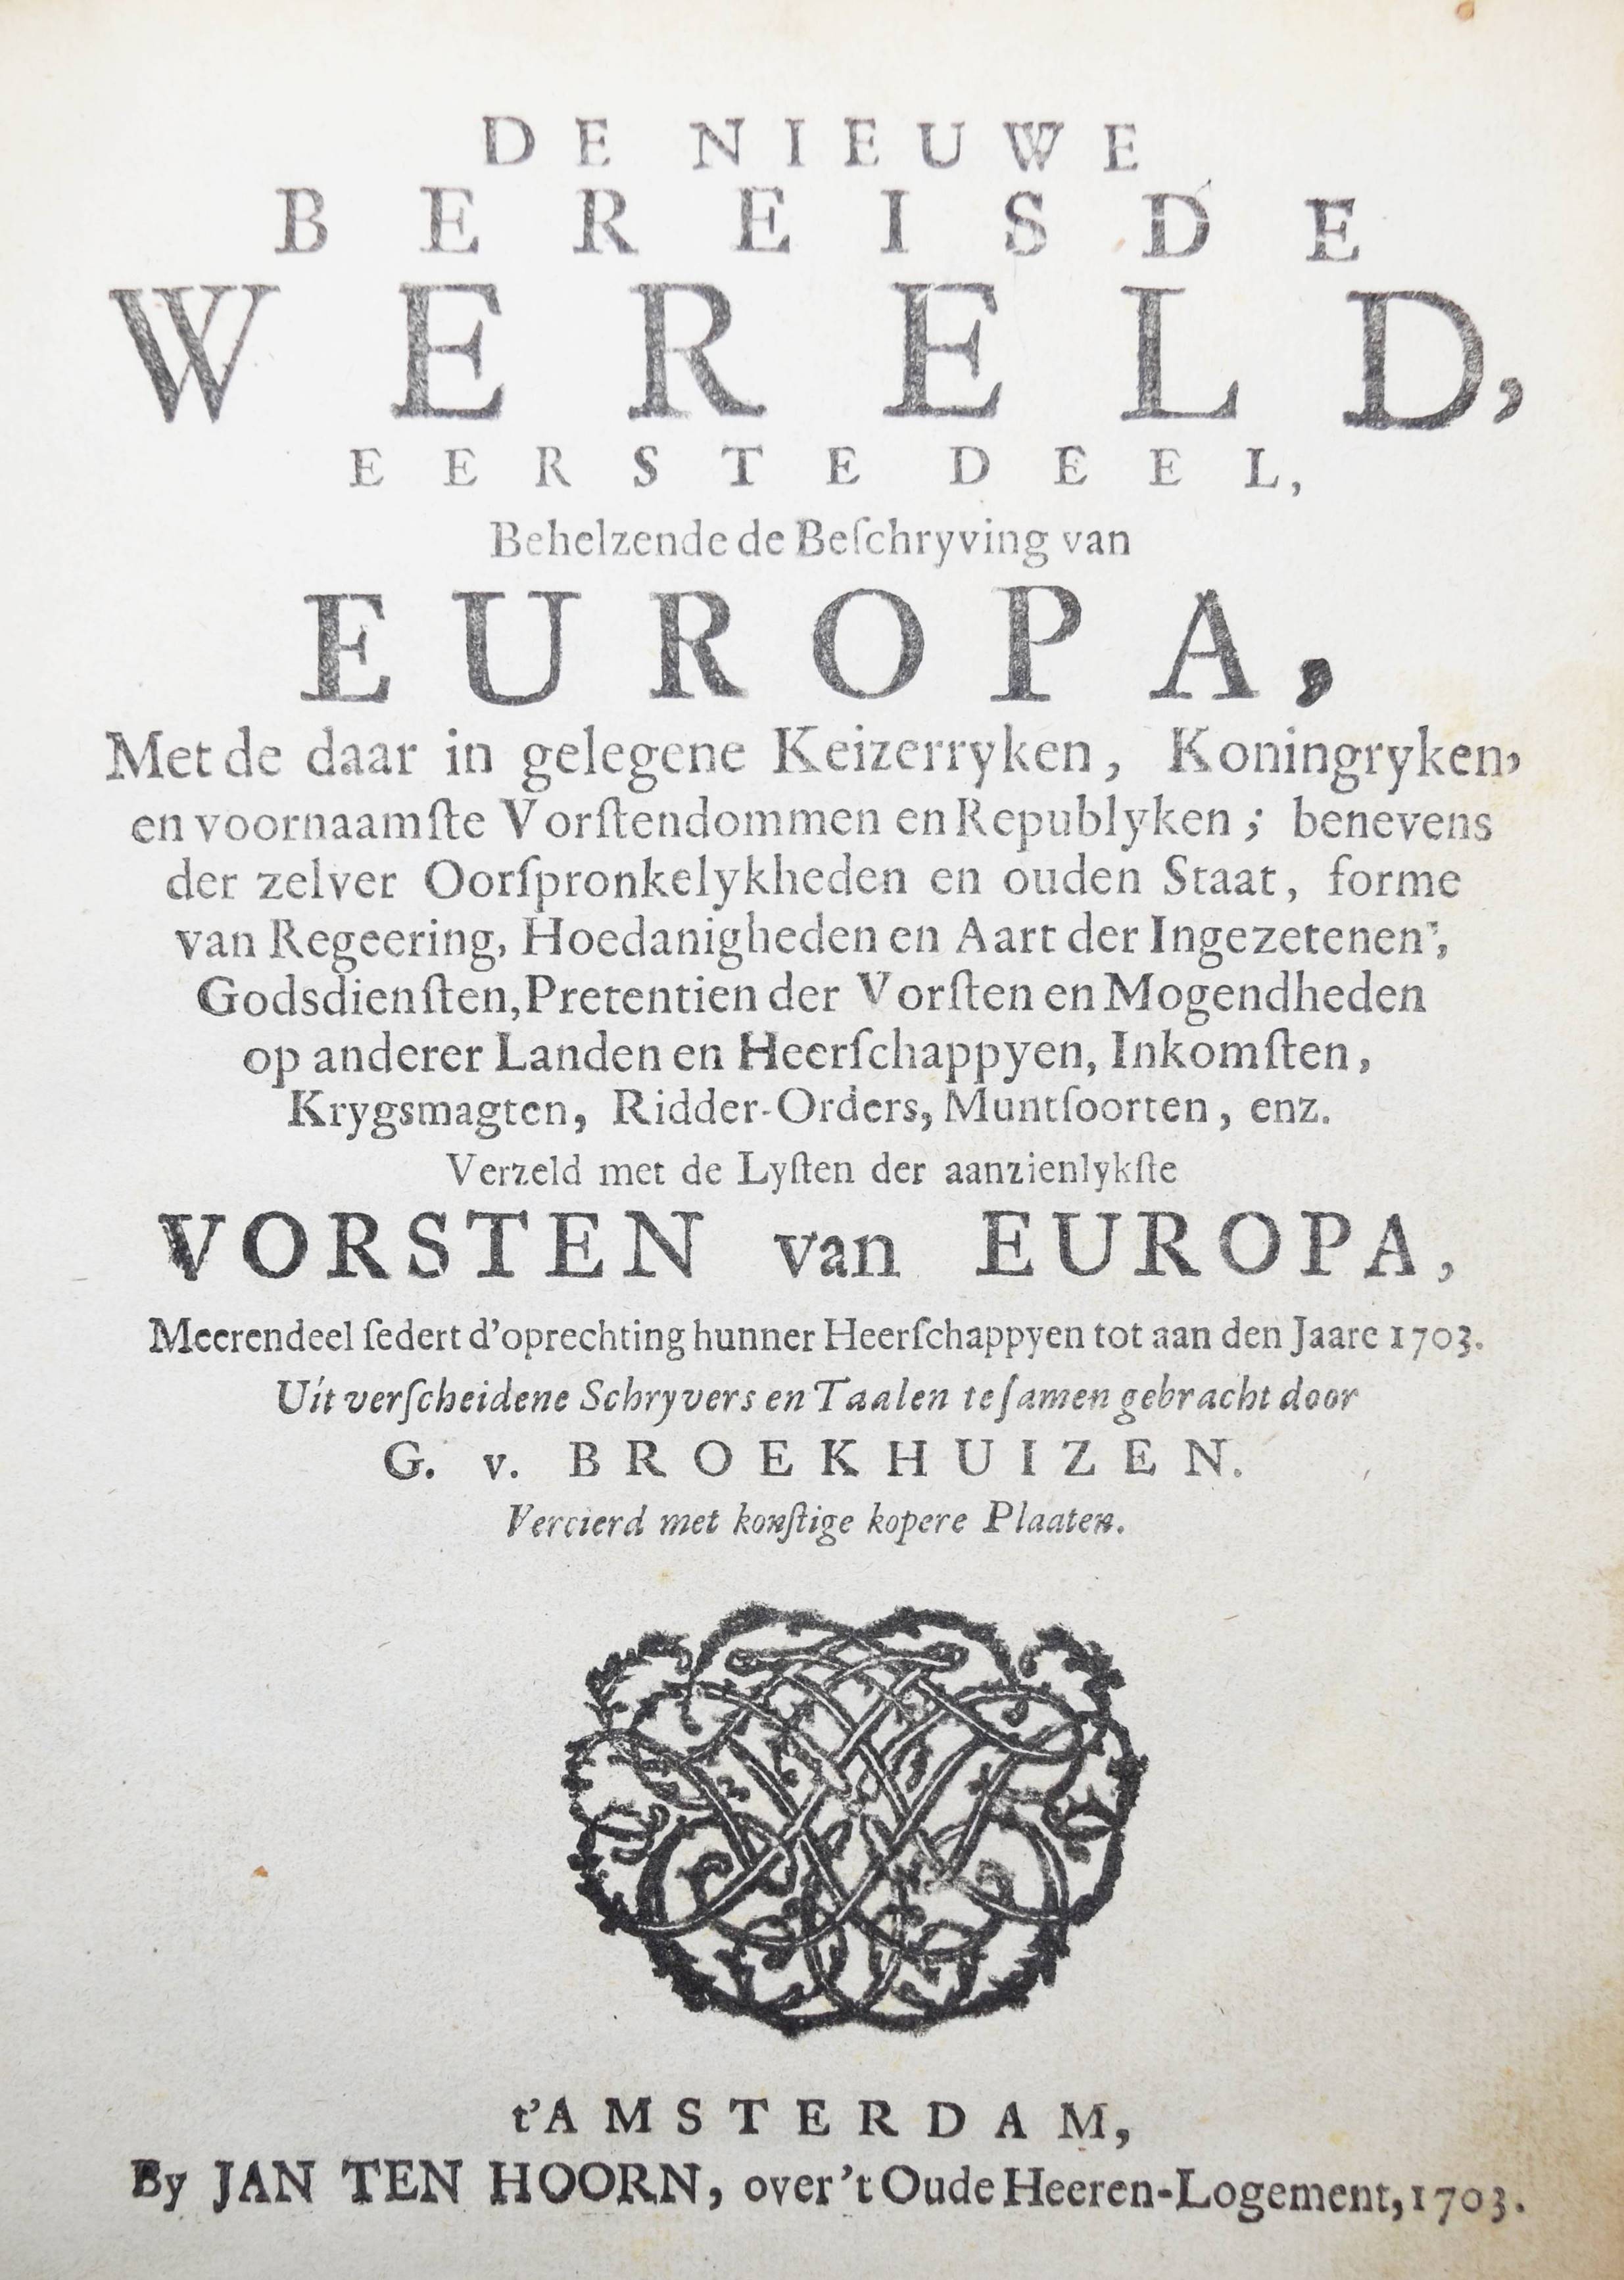 DE NIEUWE
BEREISDE
WERELD,
EERSTE DEEL,
Behelzende de Beſchryving van
EUROPA,
Met de daar in gelegene Keizerryken, Koningryken,
en voornaamſte Vorſtendommen en Republyken; benevens
der zelver Oorſpronkelykheden en ouden Staat, forme
van Regeering, Hoedanigheden en Aart der Ingezetenen,
Godsdienſten, Pretentien der Vorſten en Mogendheden
op anderer Landen en Heerſchappyen, Inkomſten,
Krygsmagten, Ridder-Orders, Muntſoorten, enz.
Verzeld met de Lyſten der aanzienlykſte
VORSTEN van EUROPA,
Meerendeel ſedert d'oprechting hunner Heerſchappyen tot aan den Jaare 1703.
Uit verſcheidene Schryvers en Taalen teſamen gebracht door
G. v. BROEKHUIZEN.
Vercierd met konſtige kopere Plaaten.
t'AMSTERDAM,
By JAN TEN HOORN, over 't Oude Heeren-Logement, 1703.